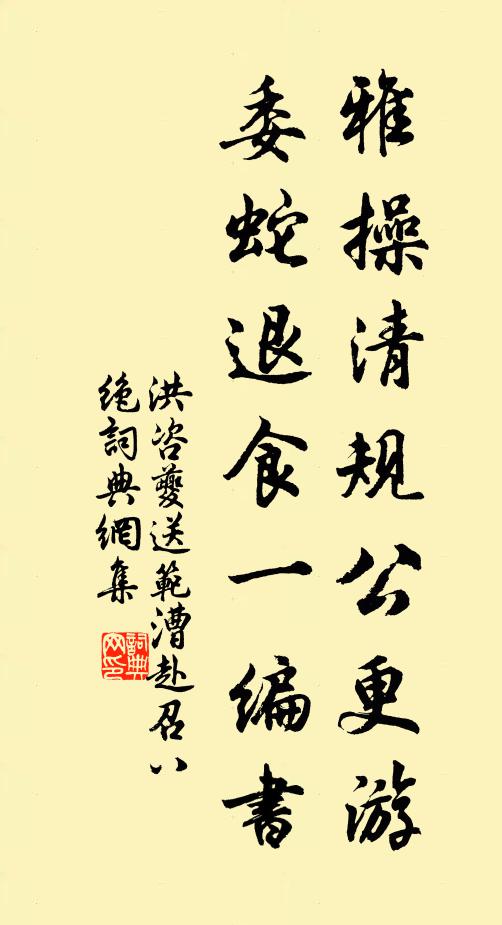 雅操清規公更游
委蛇退食一編書
洪咨夔送範漕赴召八
絶詞典網集
詞典网印